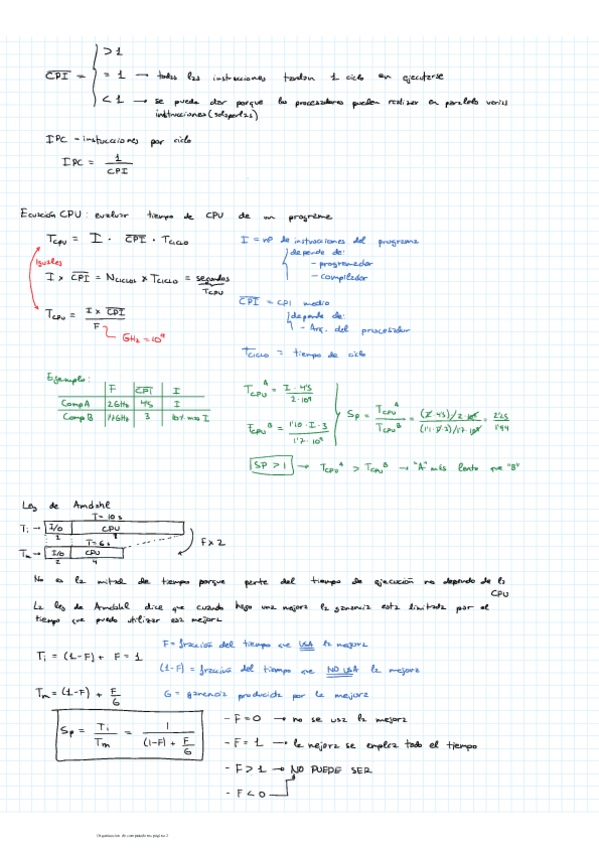 > 1
CPI = = 1 → todas las instrucciones tardan 1 ciclo en ejecutarse
< 1 → se puede dar porque los procesadores pueden realizar en paralelo varias
instrucciones (solaparlas)
IPC - instrucciones por ciclo
IPC = 1 / CPI
Ecuación CPU: evaluar tiempo de CPU de un programa
Tcpu = I · CPI · Tciclo
I = nº de instrucciones del programa
depende de:
- programador
- compilador
iguales
I × CPI = Nciclos × Tciclo = segundos
Tcpu
CPI = CPI medio
depende de:
- Arq. del procesador
Tcpu = I × CPI / F
GHz = 10⁹
Tciclo = tiempo de ciclo
Ejemplo:
F CPI I
Comp A 2GHz 4'5 I
Comp B 1'7GHz 3 10% más I
Tcpu A = I · 4'5 / 2·10⁹
Tcpu B = 1'10 · I · 3 / 1'7 · 10⁹
Sp = Tcpu A / Tcpu B = (I · 4'5)/2·10⁹ / (1'1 · I · 3)/1'7·10⁹ = 2'25 / 1'94
SP > 1 → Tcpu A > Tcpu B → "A" más lento que "B"
Ley de Amdahl
T = 10 s
Ti → I/O CPU
2
T = 6 s
F x 2
Tm → I/O CPU
2 4
No es la mitad de tiempo porque parte del tiempo de ejecución no depende de la
CPU
La ley de Amdahl dice que cuando hago una mejora la ganancia esta limitada por el
tiempo que puedo utilizar esa mejora
F = fracción del tiempo que USA la mejora
Ti = (1-F) + F = 1
(1-F) = fracción del tiempo que NO USA la mejora
Tm = (1-F) + F/G
G = ganancia producida por la mejora
Sp = Ti / Tm = 1 / (1-F) + F/G
- F = 0 → no se usa la mejora
- F = 1 → la mejora se emplea todo el tiempo
- F > 1 → NO PUEDE SER
- F < 0
Organización de computadores página 2